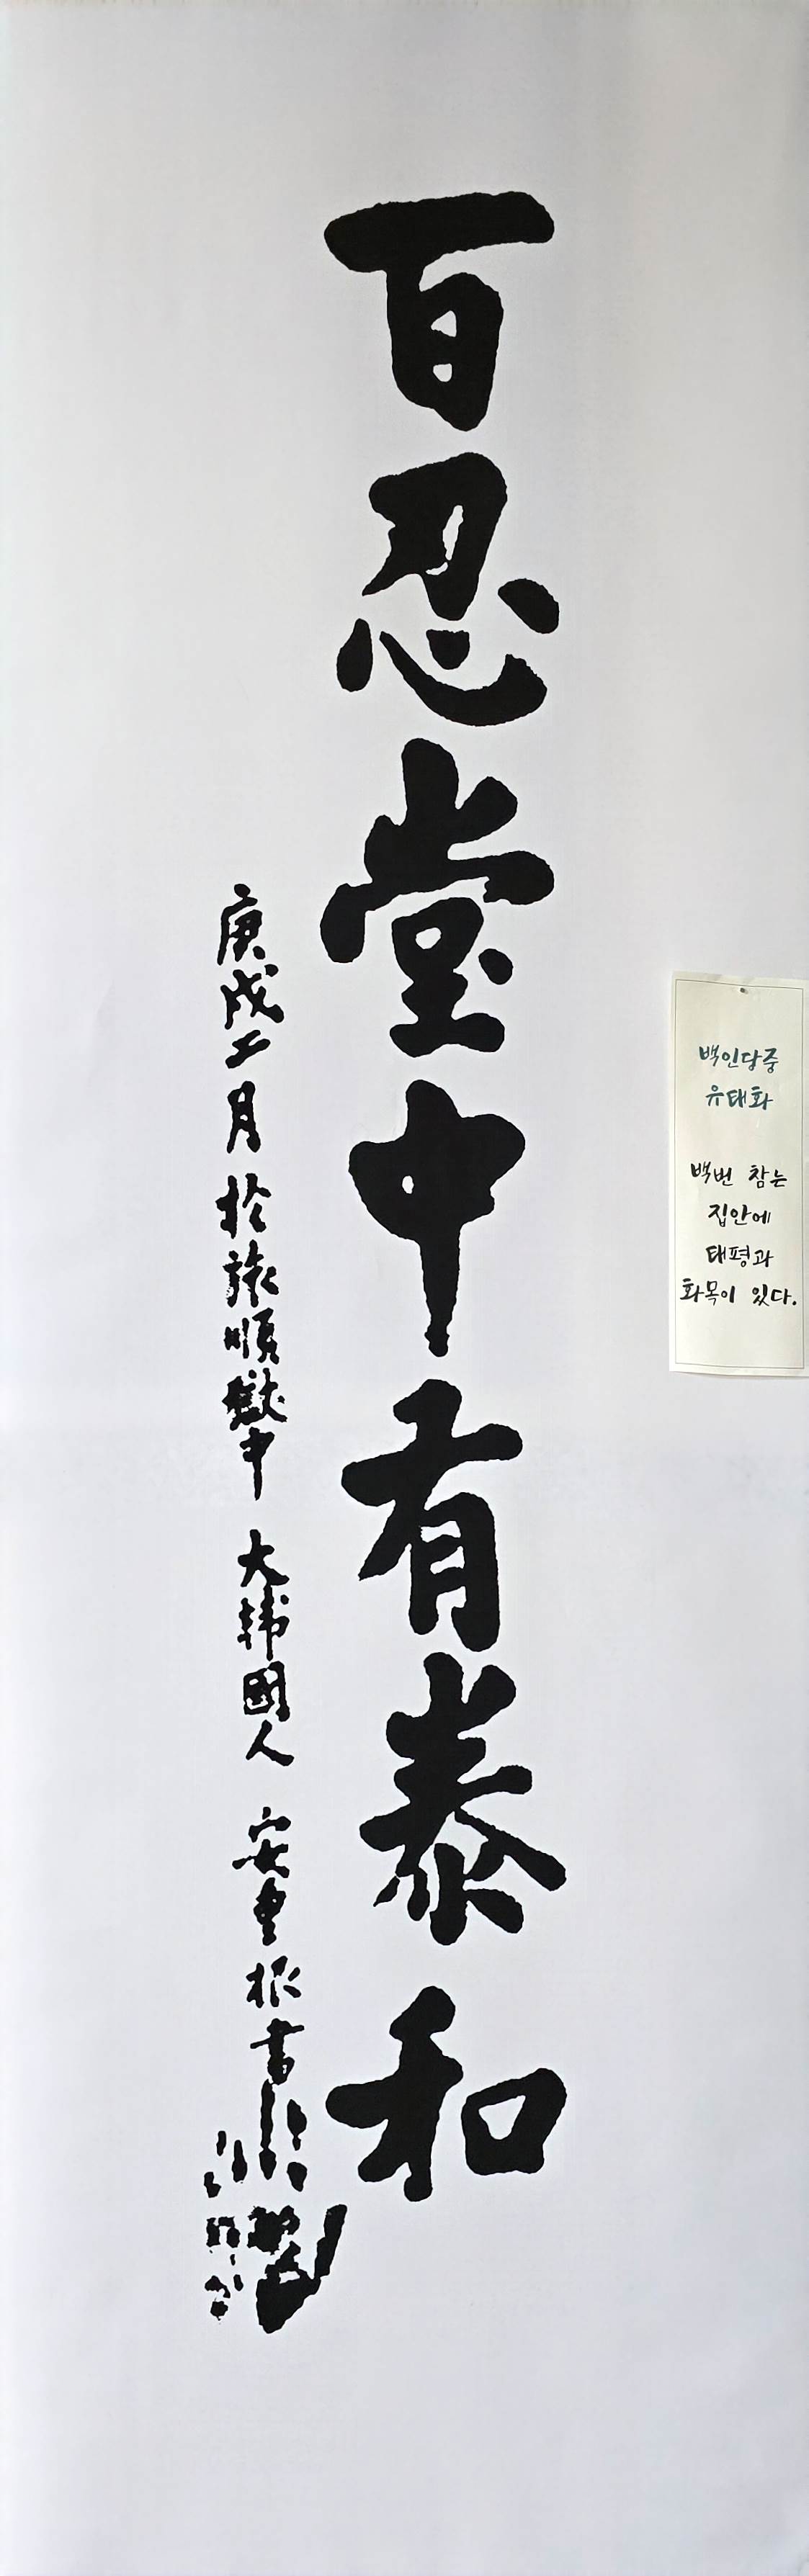 百忍堂中有泰和
庚戌二月 於旅順獄中 大韓國人 安重根書
백인당중
유태화
백번 참는
집안에
태평과
화목이 있다.